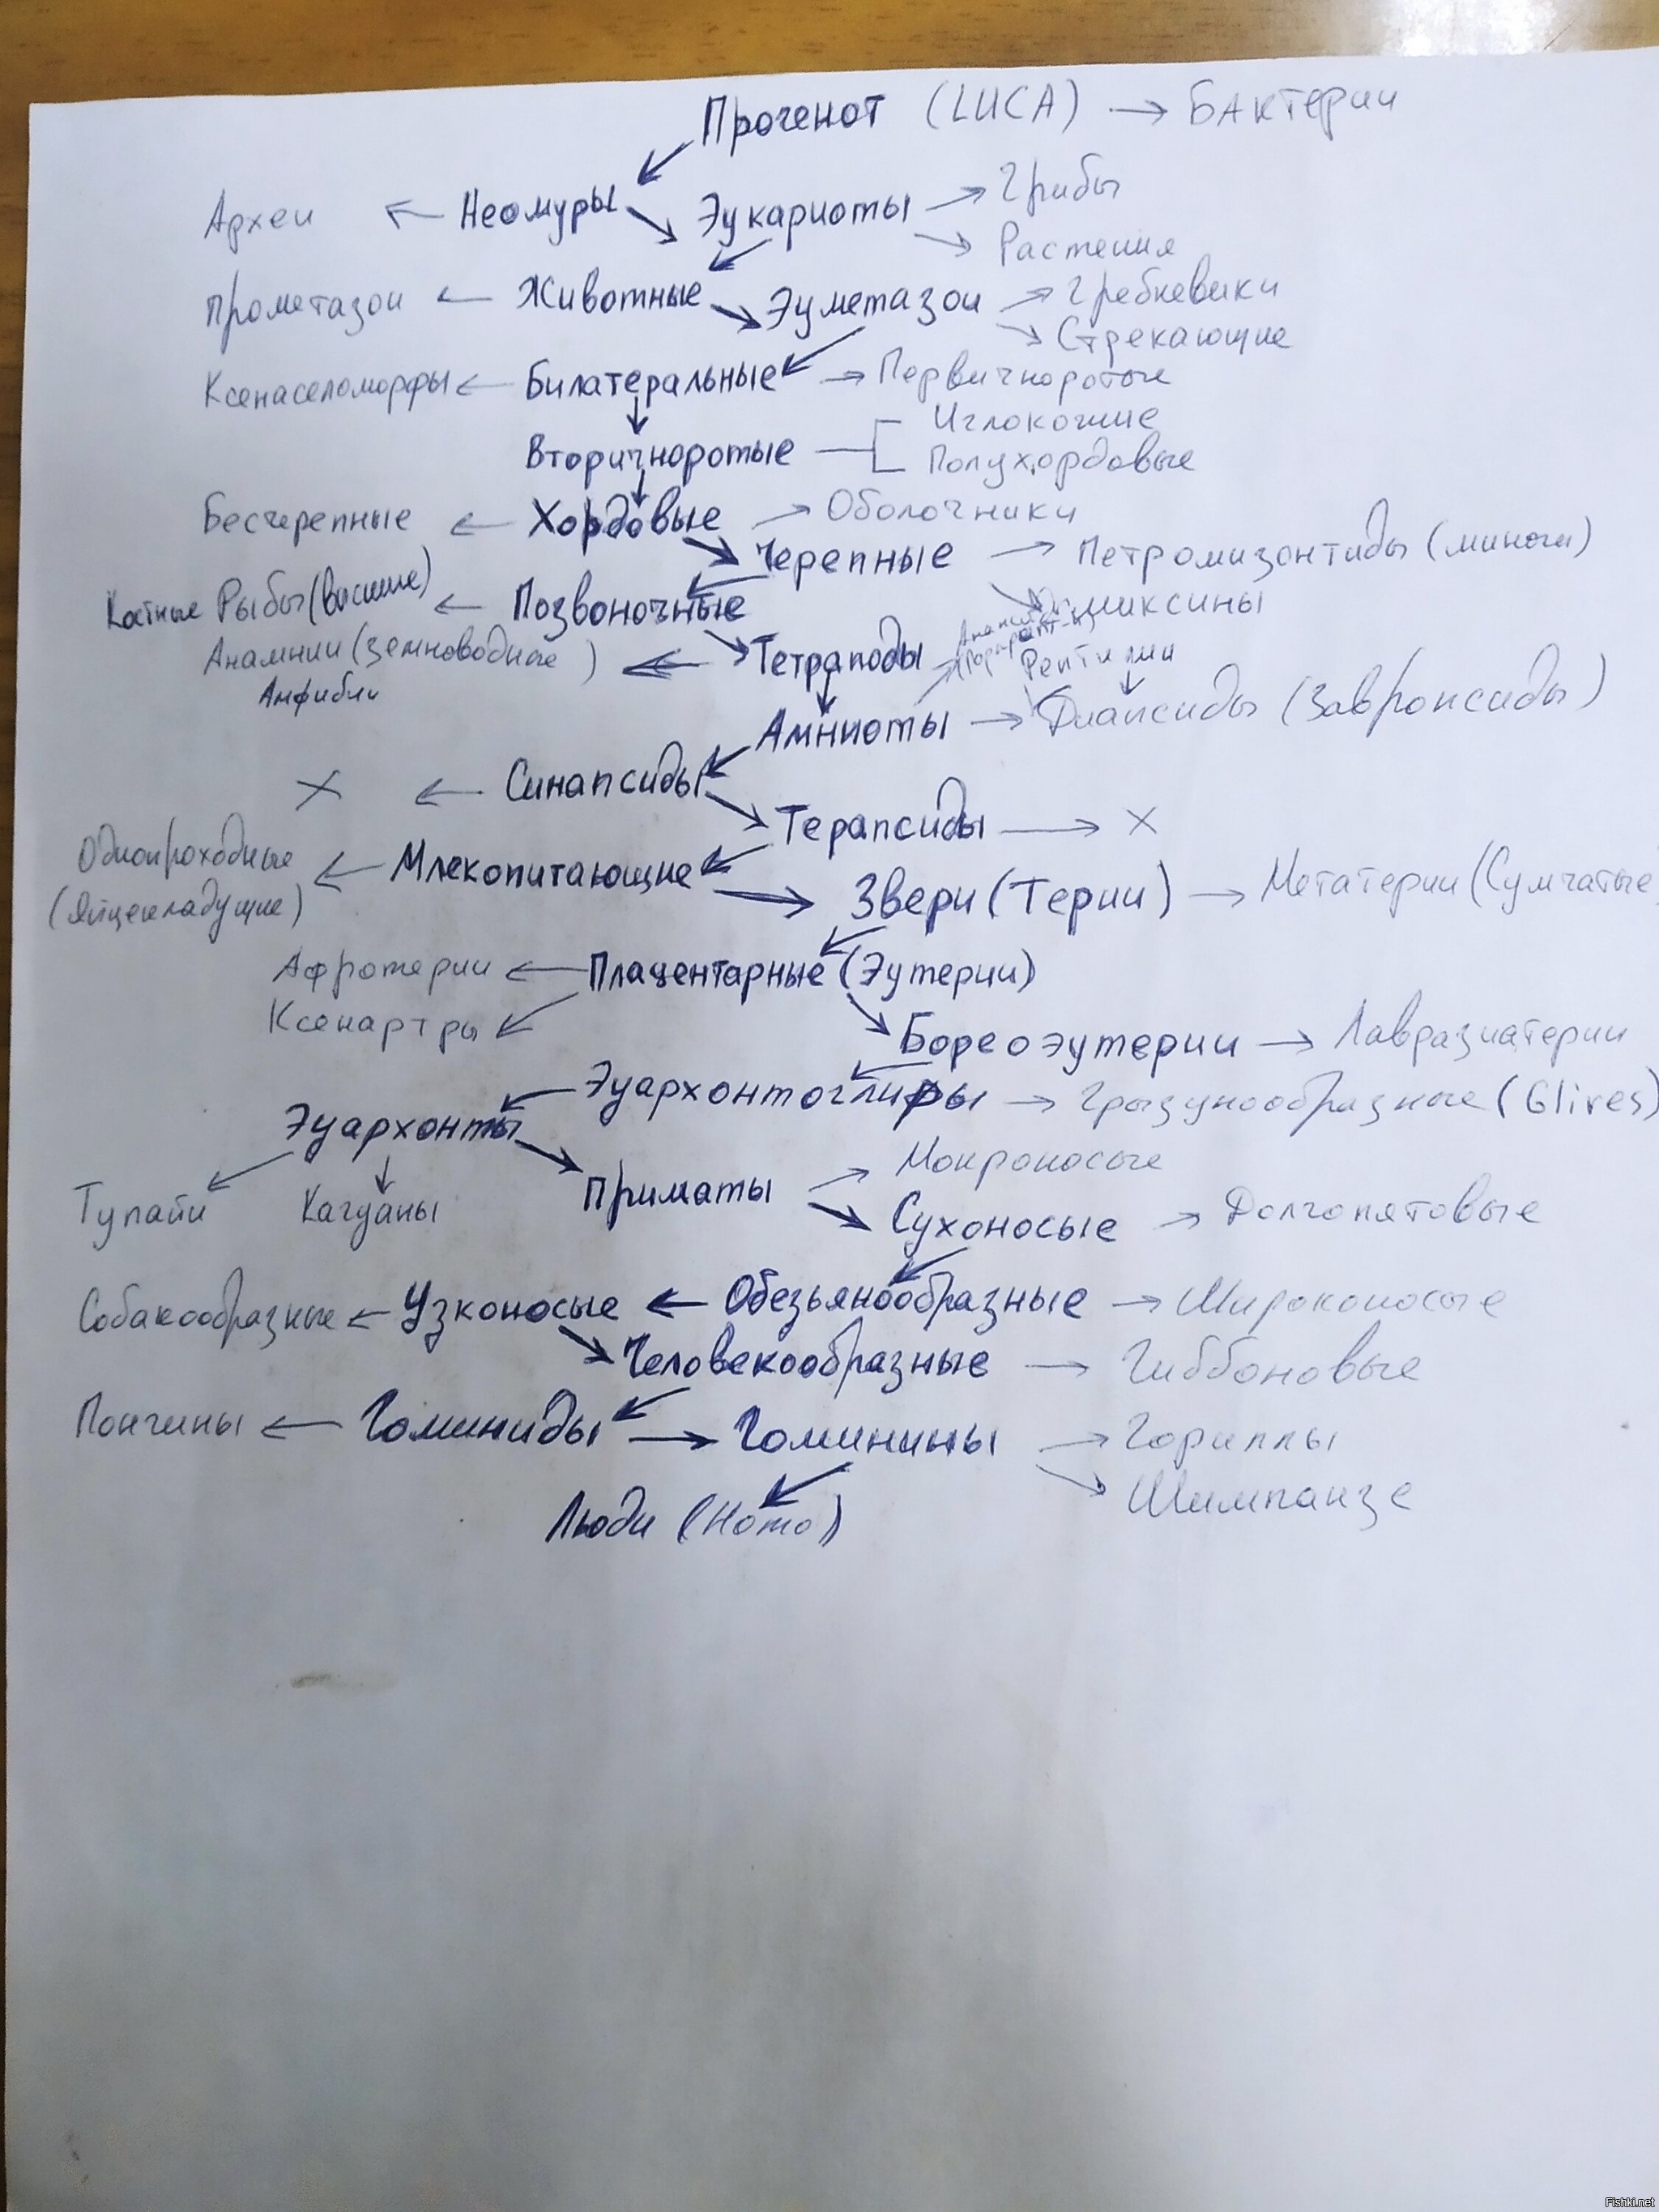 Прогенот (LUCA) → Бактерии
Археи ← Неомуры Эукариоты → Грибы
Растения
Прометазои ← Животные Эуметазои → Гребневики
Стрекающие
Ксенаселоморфы ← Билатеральные → Первичноротые
Вторичноротые Иглокожие
Полухордовые
Бесчерепные ← Хордовые → Оболочники
Черепные → Петромизонтиды (миноги)
Миксины
Костные Рыбы (высшие) ← Позвоночные
Анамнии (земноводные) ← Тетраподы Рептилии
Амфибии
Амниоты → Диапсиды (Завропсиды)
X ← Синапсиды
Терапсиды → X
Однопроходные ← Млекопитающие
(Яйцекладущие) Звери (Терии) → Метатерии (Сумчатые
Афротерии ← Плаценtарные (Эутерии)
Ксенартры
Бореоэутерии → Лавразиатерии
Эуархонтоглиры → Грызунообразные (Glires)
Эуархонты
Мокроносые
Тупайи Кагуаны Приматы
Сухоносые → Долгопятовые
Собакообразные ← Узконосые ← Обезьянообразные → Широконосые
Человекообразные → Гиббоновые
Понгины ← Гоминиды → Гоминины → Гориллы
Шимпанзе
Люди (Homo)
Fishki.net